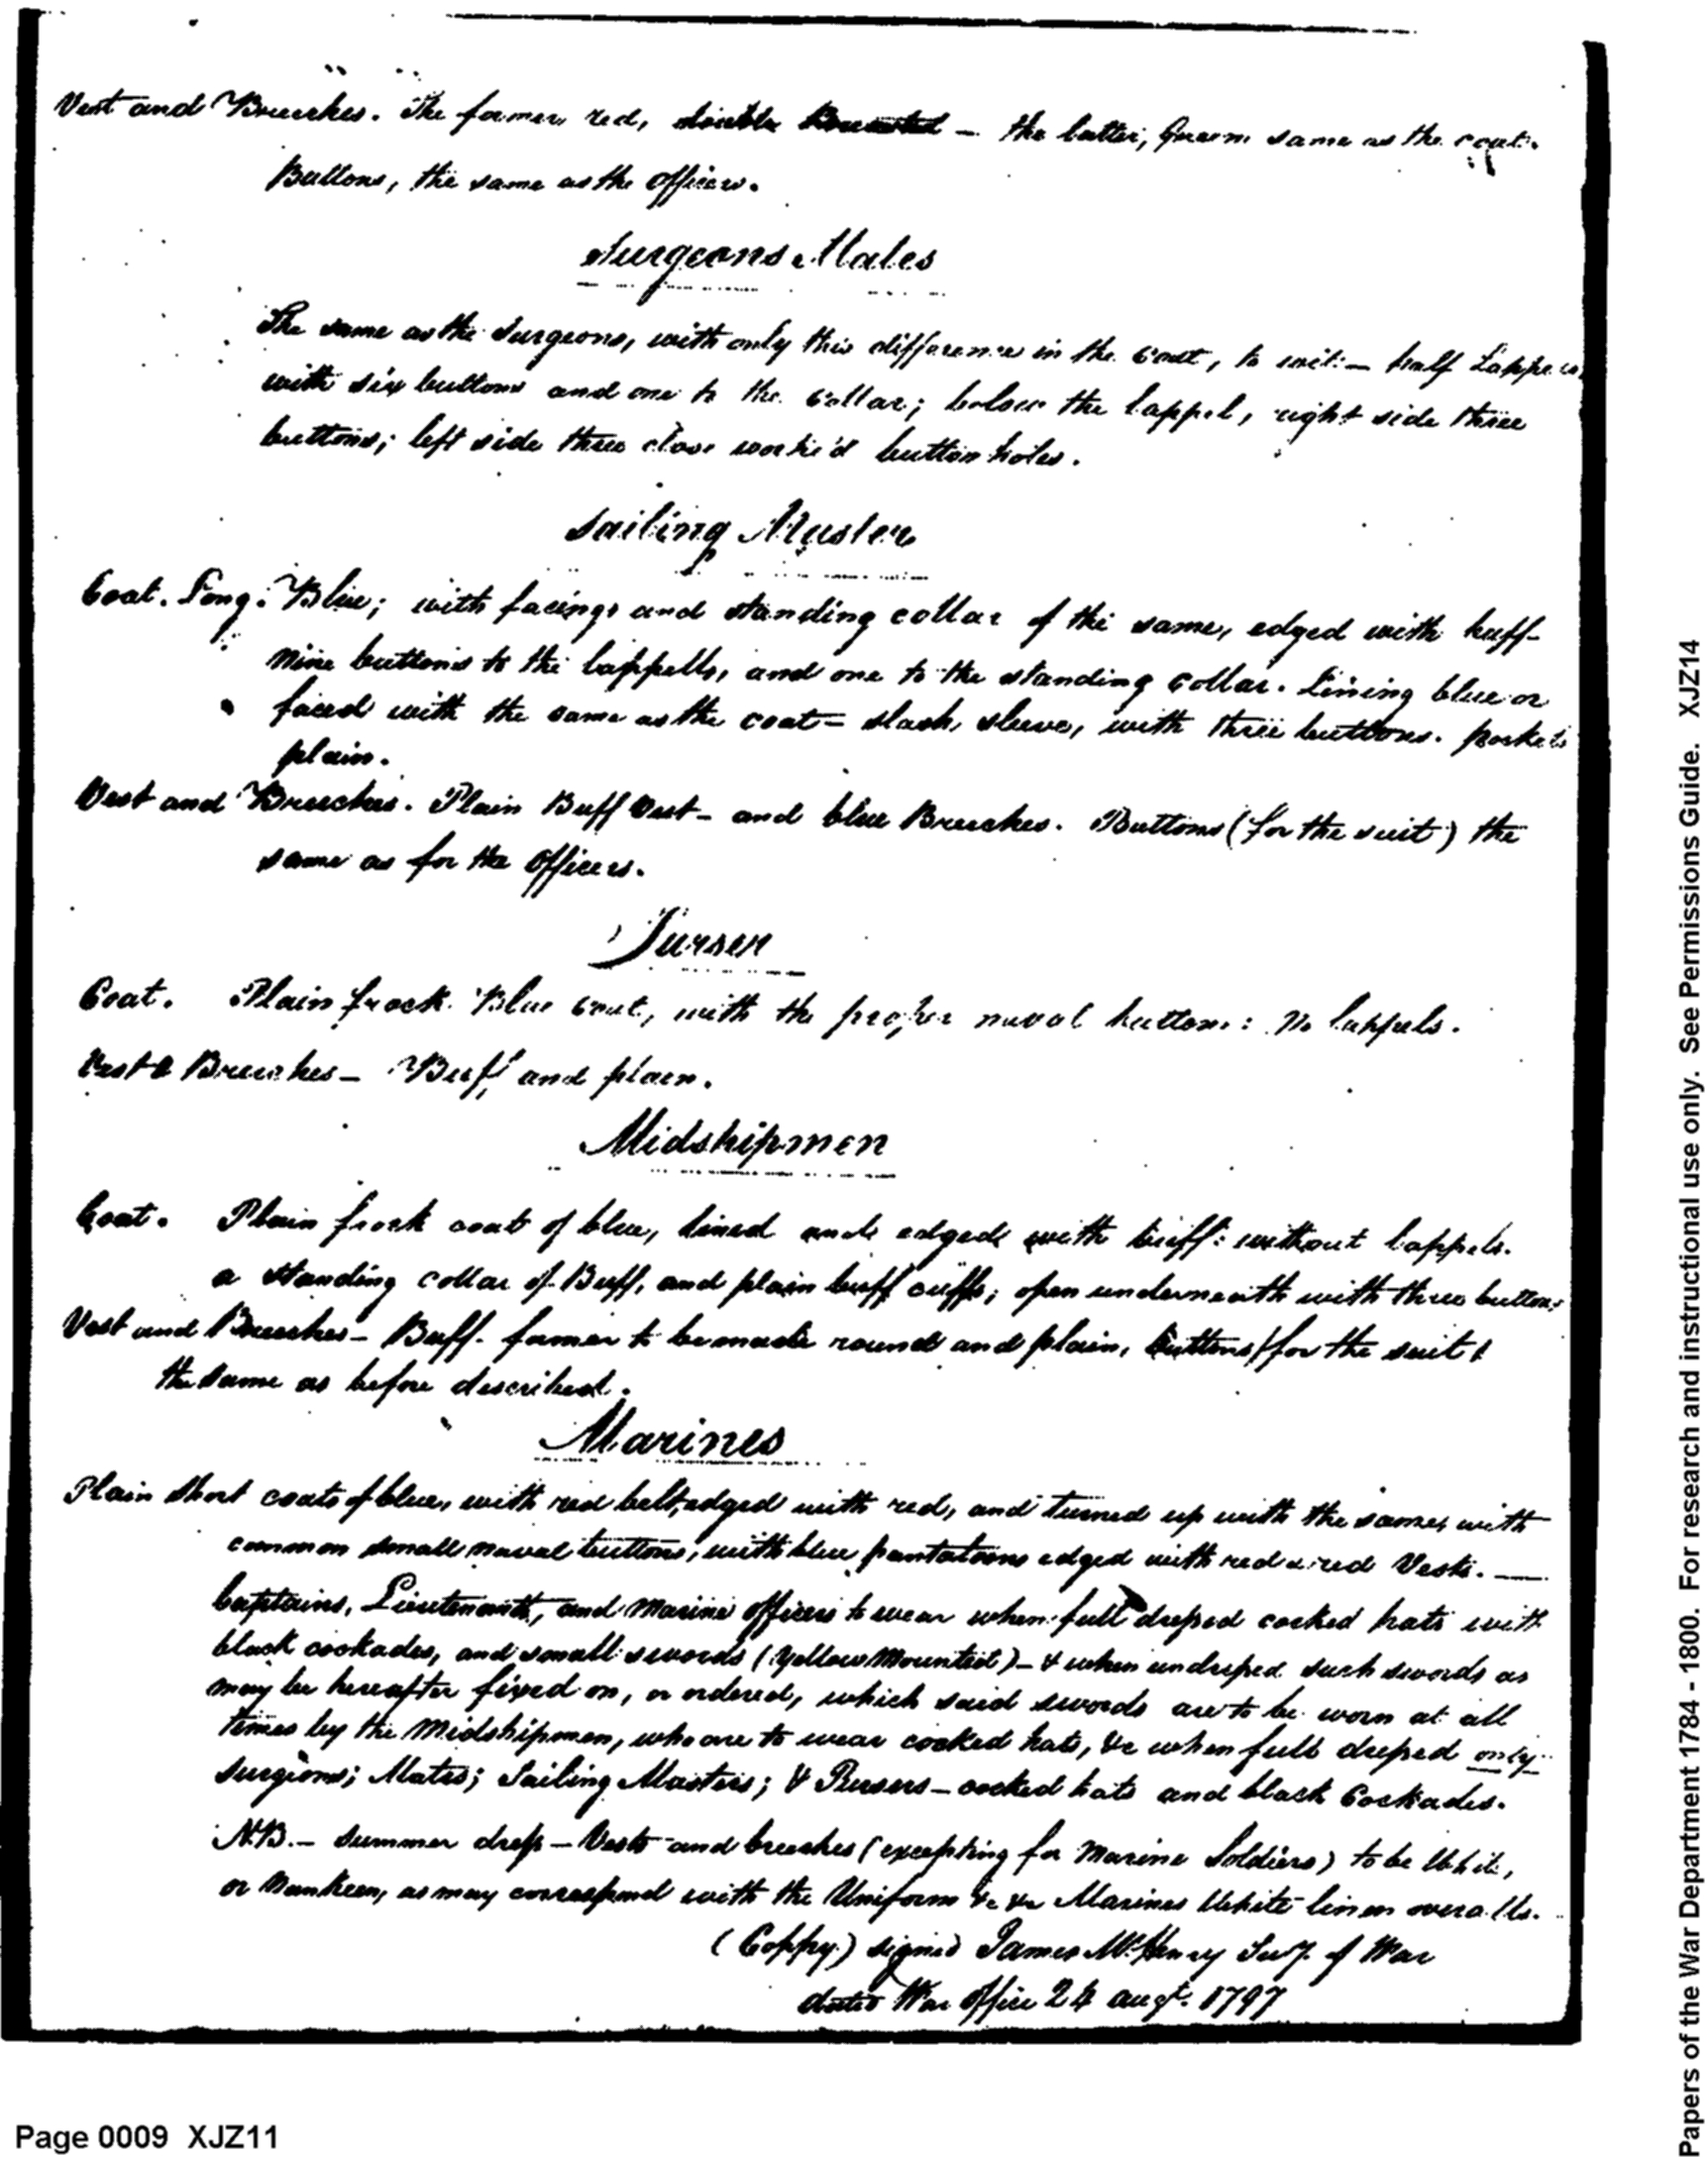 Vest and Breeches. The former red, double Breasted – the latter, Green same as the coat.
Buttons, the same as the officers.
Surgeons Mates
The same as the Surgeons, with only this difference in the Coat, to wit: – half Lappels
with six buttons and one to the Collar; below the lappel, right side three
buttons; left side three close work'd button holes.
Sailing Master
Coat. Long: Blue; with facings and standing collar of the same, edged with buff –
nine buttons to the lappells, and one to the standing Collar. Lining blue or
faced with the same as the coat = slash sleeve, with three buttons. pockets
plain.
Vest and Breeches. Plain Buff Vest – and blue Breeches. Buttons (for the suit) the
same as for the Officers.
Purser
Coat. Plain frock Blue Coat, with the proper naval button: No lappels.
Vest & Breeches – Buff and plain.
Midshipmen
Coat. Plain frock coat of blue, lined and edged with buff: without lappels.
a standing collar of Buff, and plain buff cuffs; open underneath with three buttons
Vest and Breeches – Buff. former to be made round and plain, Buttons (for the suit)
the same as before described.
Marines
Plain short coats of blue, with red belt, edged with red, and turned up with the same, with
common small naval buttons, with blue pantaloons edged with red & red Vests. —
Captains, Lieutenants, and Marine officers to wear when full dressed cocked hats with
black cockades, and small swords (yellow Mounted) – & when undressed such swords as
may be hereafter fixed on, or ordered, which said swords are to be worn at all
times by the Midshipmen, who are to wear cocked hats, &c when full dressed only.
Surgeons; Mates; Sailing Masters; & Pursers – cocked hats and black Cockades.
N.B. – Summer dress – Vests and breeches (excepting for Marine Soldiers) to be White,
or Nankeen, as may correspond with the Uniform &c &c Marines White linen overalls.
(Coppy) signed James McHenry Secy. of War
dated War Office 24 augt. 1797
Page 0009 XJZ11
Papers of the War Department 1784 - 1800. For research and instructional use only. See Permissions Guide. XJZ14